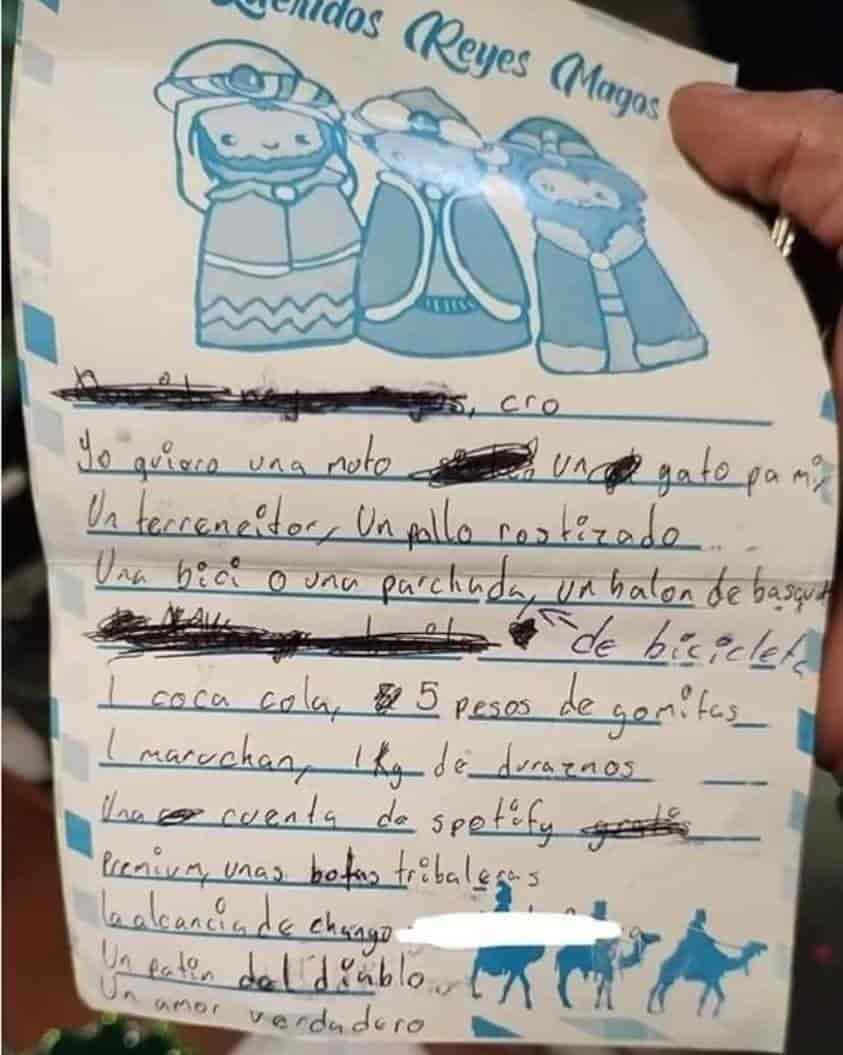 Queridos Reyes Magos
, cro
Yo quiero una moto un gato pa mi
Un terreneitor, Un pollo rostizado
Una bici o una parchada, un balon de basquet
de bicicleta
1 coca cola, 5 pesos de gomitas
1 maruchan, 1kg de duraznos
Una cuenta de spotify
Premium, unas botas tribaleras
la alcancia de chango
Un patin del diablo
Un amor verdadero